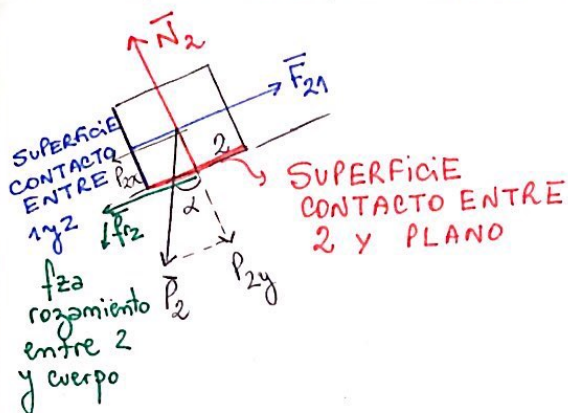 N̅₂
F̅₂₁
SUPERFICIE
CONTACTO
ENTRE
1 y 2
P̅₂ₓ
2
SUPERFICIE
CONTACTO ENTRE
2 Y PLANO
α
f̅r₂
P̅₂
P₂y
fza
rozamiento
entre 2
y cuerpo